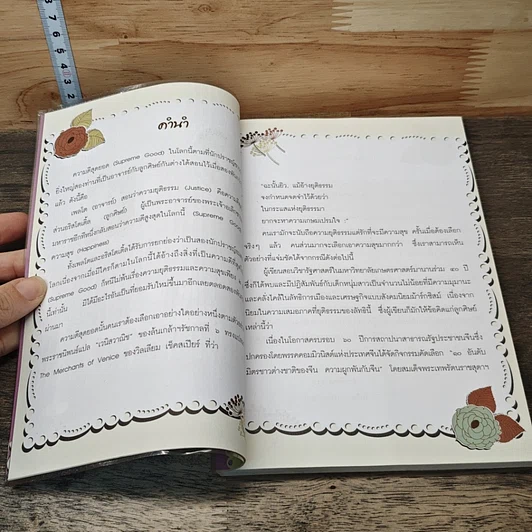 8
7
6
5
4
3
2
คำนำ
ความดีสุดยอด (Supreme Good) ในโลกนี้ตามที่นักปราชญ์
ยิ่งใหญ่สองท่านที่เป็นอาจารย์กับลูกศิษย์กันต่างได้สอนไว้เมื่อสองพัน
แล้ว ดังนี้คือ
เพลโต (อาจารย์) สอนว่าความยุติธรรม (Justice) คือความดี
ส่วนอริสโตเติ้ล (ลูกศิษย์) ผู้เป็นพระอาจารย์ของพระเจ้าอเล็กซาน
มหาราชอีกทีหนึ่งกลับสอนว่าความดีสูงสุดในโลกนี้ (Supreme Good)
ความสุข (Happiness)
ทั้งเพลโตและอริสโตเติ้ลได้รับการยกย่องว่าเป็นสองนักปราชญ์
โลกเนื่องจากเมื่อมีใครก็ตามในโลกนี้ได้อ้างถึงสิ่งที่เป็นความดี
(Supreme Good) ก็หนีไม่พ้นเรื่องความยุติธรรมและความสุขเพียง
นี้เท่านั้น มิได้มีอะไรอันเป็นที่ยอมรับใหม่ขึ้นมาอีกเลยตลอดสอง
ผ่านมา
ความดีสุดยอดนั้นคนเราต้องเลือกเอาอย่างใดอย่างหนึ่งตาม
พระราชนิพนธ์แปล "เวนิสวาณิช" ของล้นเกล้ารัชกาลที่ ๖ ทรง
the Merchants of Venice ของวิลเลียม เช็คสเปียร์ ที่ว่า
"ฉะนั้นยิว. แม้อ้างยุติธรรม
จงกำหนดจดจำไว้ด้วยว่า
ในกระแสแห่งยุติธรรมา
ยากจะหาความเกษมเปรมใจ ."
คนเรามักจะนับถือความยุติธรรมแต่รักที่จะมีความสุข ครั้นเมื่อต้องเลือก
จริงๆ แล้ว คนส่วนมากจะเลือกเอาความสุขมากกว่า ซึ่งเราสามารถเห็น
ตัวอย่างที่แจ่มชัดได้จากกรณีดังต่อไปนี้
ผู้เขียนสอนวิชารัฐศาสตร์ในมหาวิทยาลัยเกษตรศาสตร์มานานร่วม ๔๐ ปี
ซึ่งได้พบและมีปฏิสัมพันธ์กับเด็กหนุ่มสาวเป็นจำนวนไม่น้อยที่มีความมุมานะ
และคลั่งไคล้ในลัทธิการเมืองและเศรษฐกิจแบบสังคมนิยมม้ากซิสม์ เนื่องจาก
นิยมในความเสมอภาคที่ยุติธรรมของลัทธินี้ ซึ่งผู้เขียนก็มักให้ข้อคิดแก่ลูกศิษย์
เหล่านี้ว่า
เนื่องในโอกาสครบรอบ ๖๐ ปีการสถาปนาสาธารณรัฐประชาชนจีนซึ่ง
ปกครองโดยพรรคคอมมิวนิสต์แห่งประเทศจีนได้จัดกิจกรรมคัดเลือก "๑๐ อันดับ
มิตรชาวต่างชาติของจีน ความผูกพันกับจีน" โดยสมเด็จพระเทพรัตนราชสุดาฯ